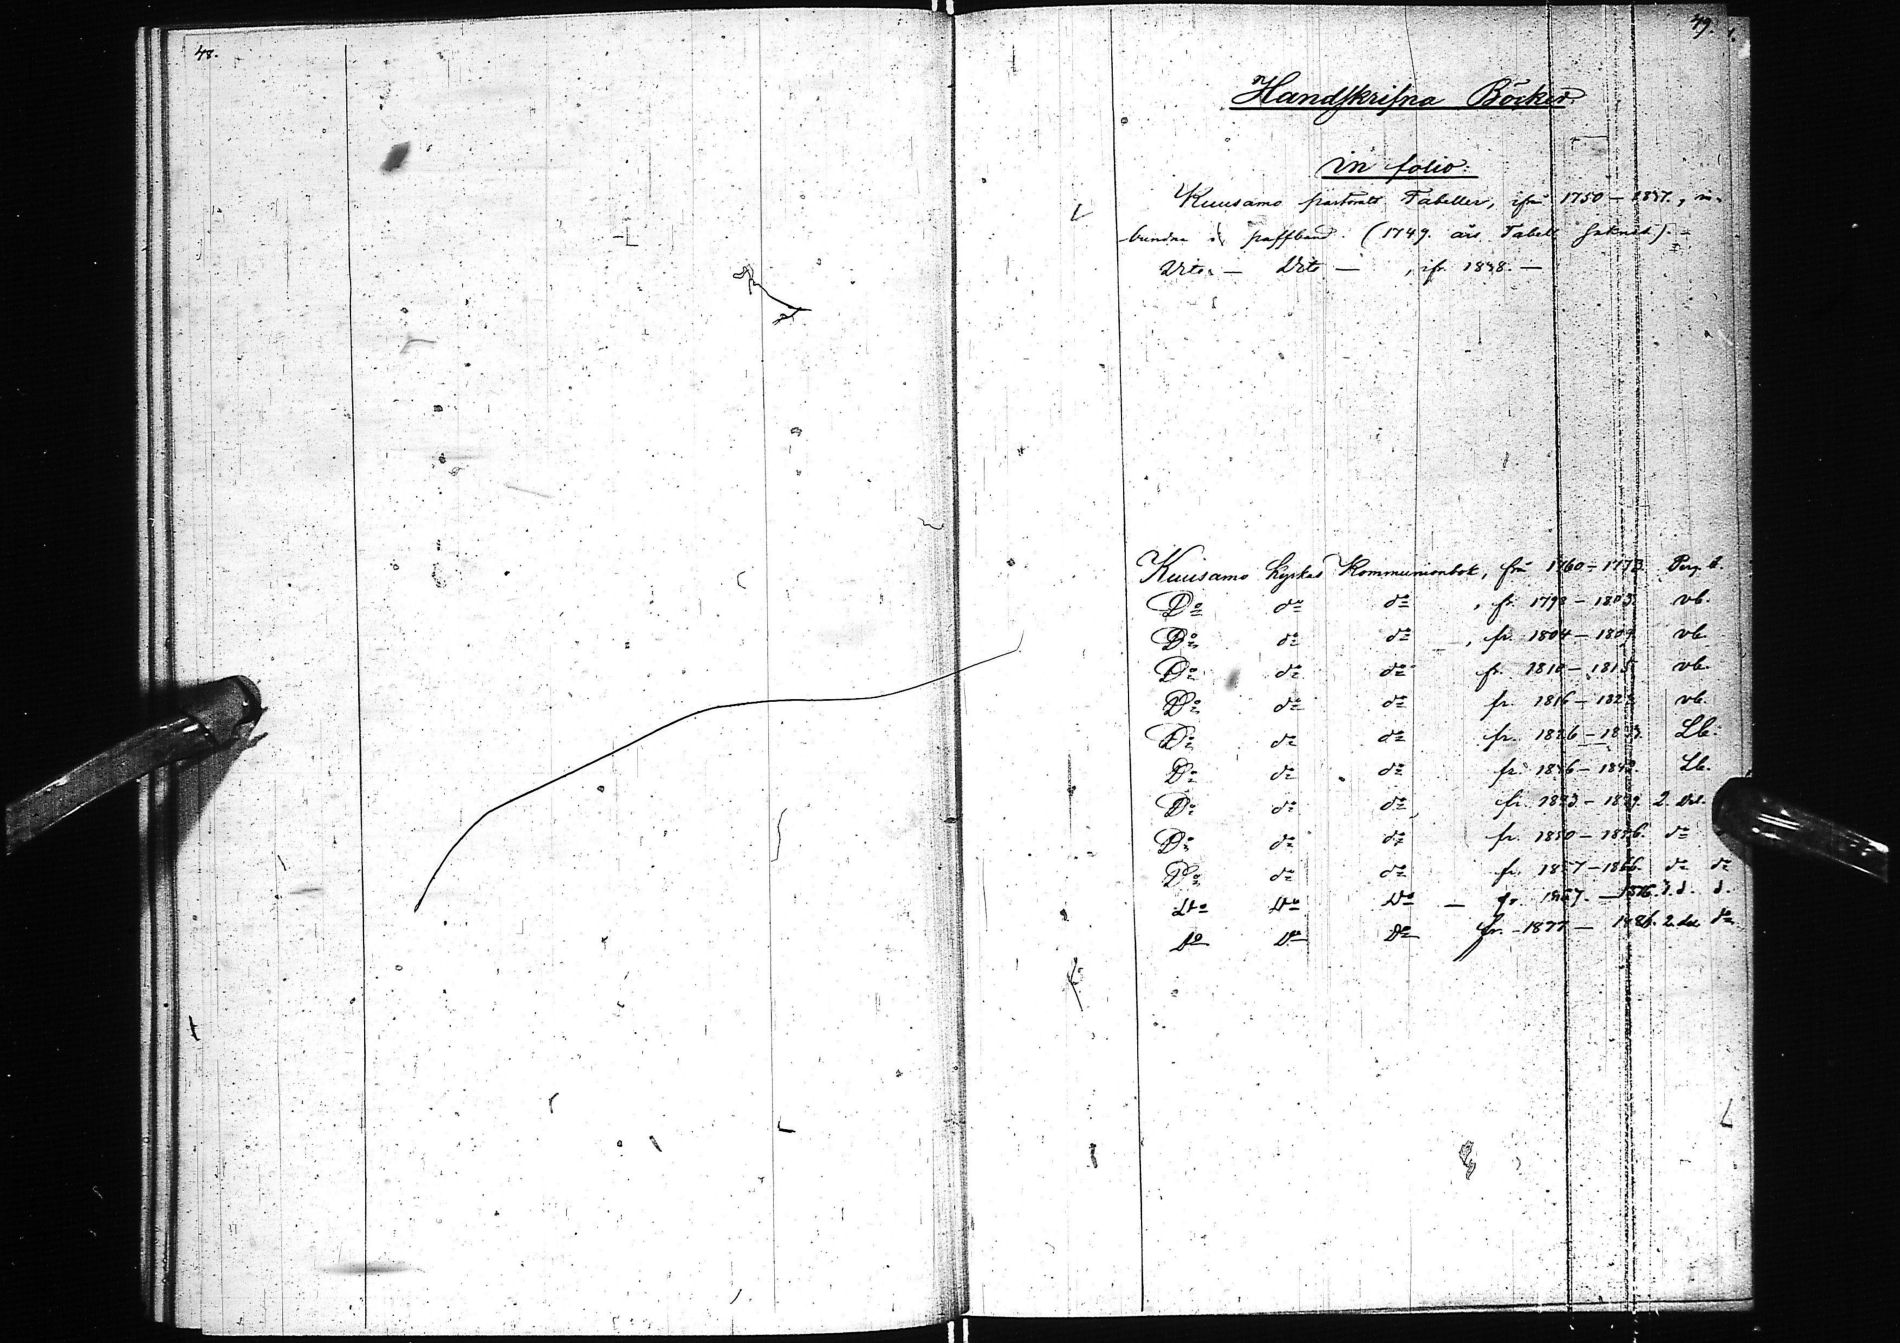 48.
49.
Handskrifna Böcker.
in folio.
Kuusamo pastorats Tabeller, ifrn 1750 – 1837., in-
bundna i paffband. (1749. års Tabell saknas). –
Dito. – Dito – , ifr. 1838. –
Kuusamo Kyrkas Kommunionbok, frn 1760 – 1773. Perg. b.
Do do do , fr. 1798 – 1803. vb.
Do do do , fr. 1804 – 1809. vb.
Do do do fr. 1810 – 1815. vb.
Do do do fr. 1816 – vb.
Do do do fr. 1826 – Lb.
Do do do fr. 1836 – 1842. Lb.
Do do do fr. 1843. – 1849. 2. del.
Do do do fr. 1850 – 1856. do
Do do do fr. 1857 – 1866. do do
Do Do Do – fr. 1867. – 1876. d. d.
Do Do Do fr. 1877 – 1886. 2 del do